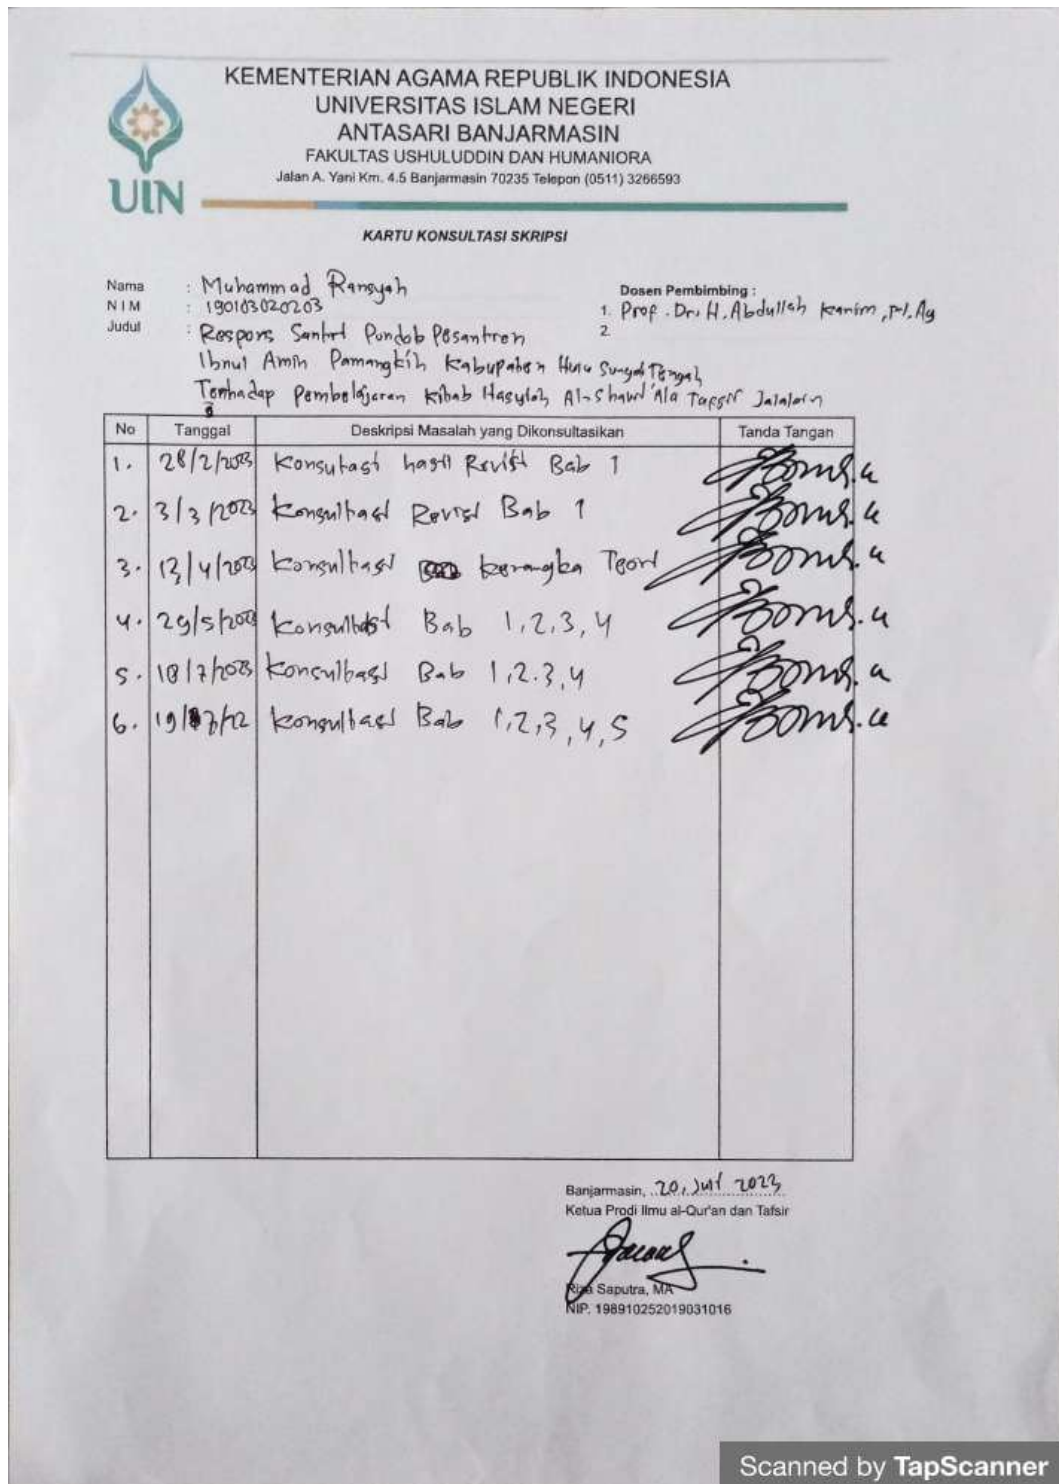 KEMENTERIAN AGAMA REPUBLIK INDONESIA
UNIVERSITAS ISLAM NEGERI
ANTASARI BANJARMASIN
FAKULTAS USHULUDDIN DAN HUMANIORA
Jalan A. Yani Km. 4.5 Banjarmasin 70235 Telepon (0511) 3266593
UIN
KARTU KONSULTASI SKRIPSI
Nama : Muhammad Ransyah
NIM : 190103020203
Dosen Pembimbing :
1. Prof. Dr. H. Abdullah Karim, M.Ag
2.
Judul : Respons Santri Pondok Pesantren
Ibnul Amin Pamangkih Kabupaten Hulu Sungai Tengah
Terhadap Pembelajaran Kitab Hasyiah Al-Shawi 'Ala Tafsir Jalalain
No Tanggal Deskripsi Masalah yang Dikonsultasikan Tanda Tangan
1. 28/2/2023 Konsutasi hasil Revisi Bab 1
2. 3/3/2023 Konsultasi Revisi Bab 1
3. 13/4/2023 Konsultasi Kerangka Teori
4. 29/5/2023 Konsultasi Bab 1,2,3,4
5. 18/7/2023 Konsultasi Bab 1,2,3,4
6. Konsultasi Bab 1,2,3,4,5
Banjarmasin, 20, Juli 2023
Ketua Prodi Ilmu al-Qur'an dan Tafsir
Riza Saputra, MA
NIP. 198910252019031016
Scanned by TapScanner